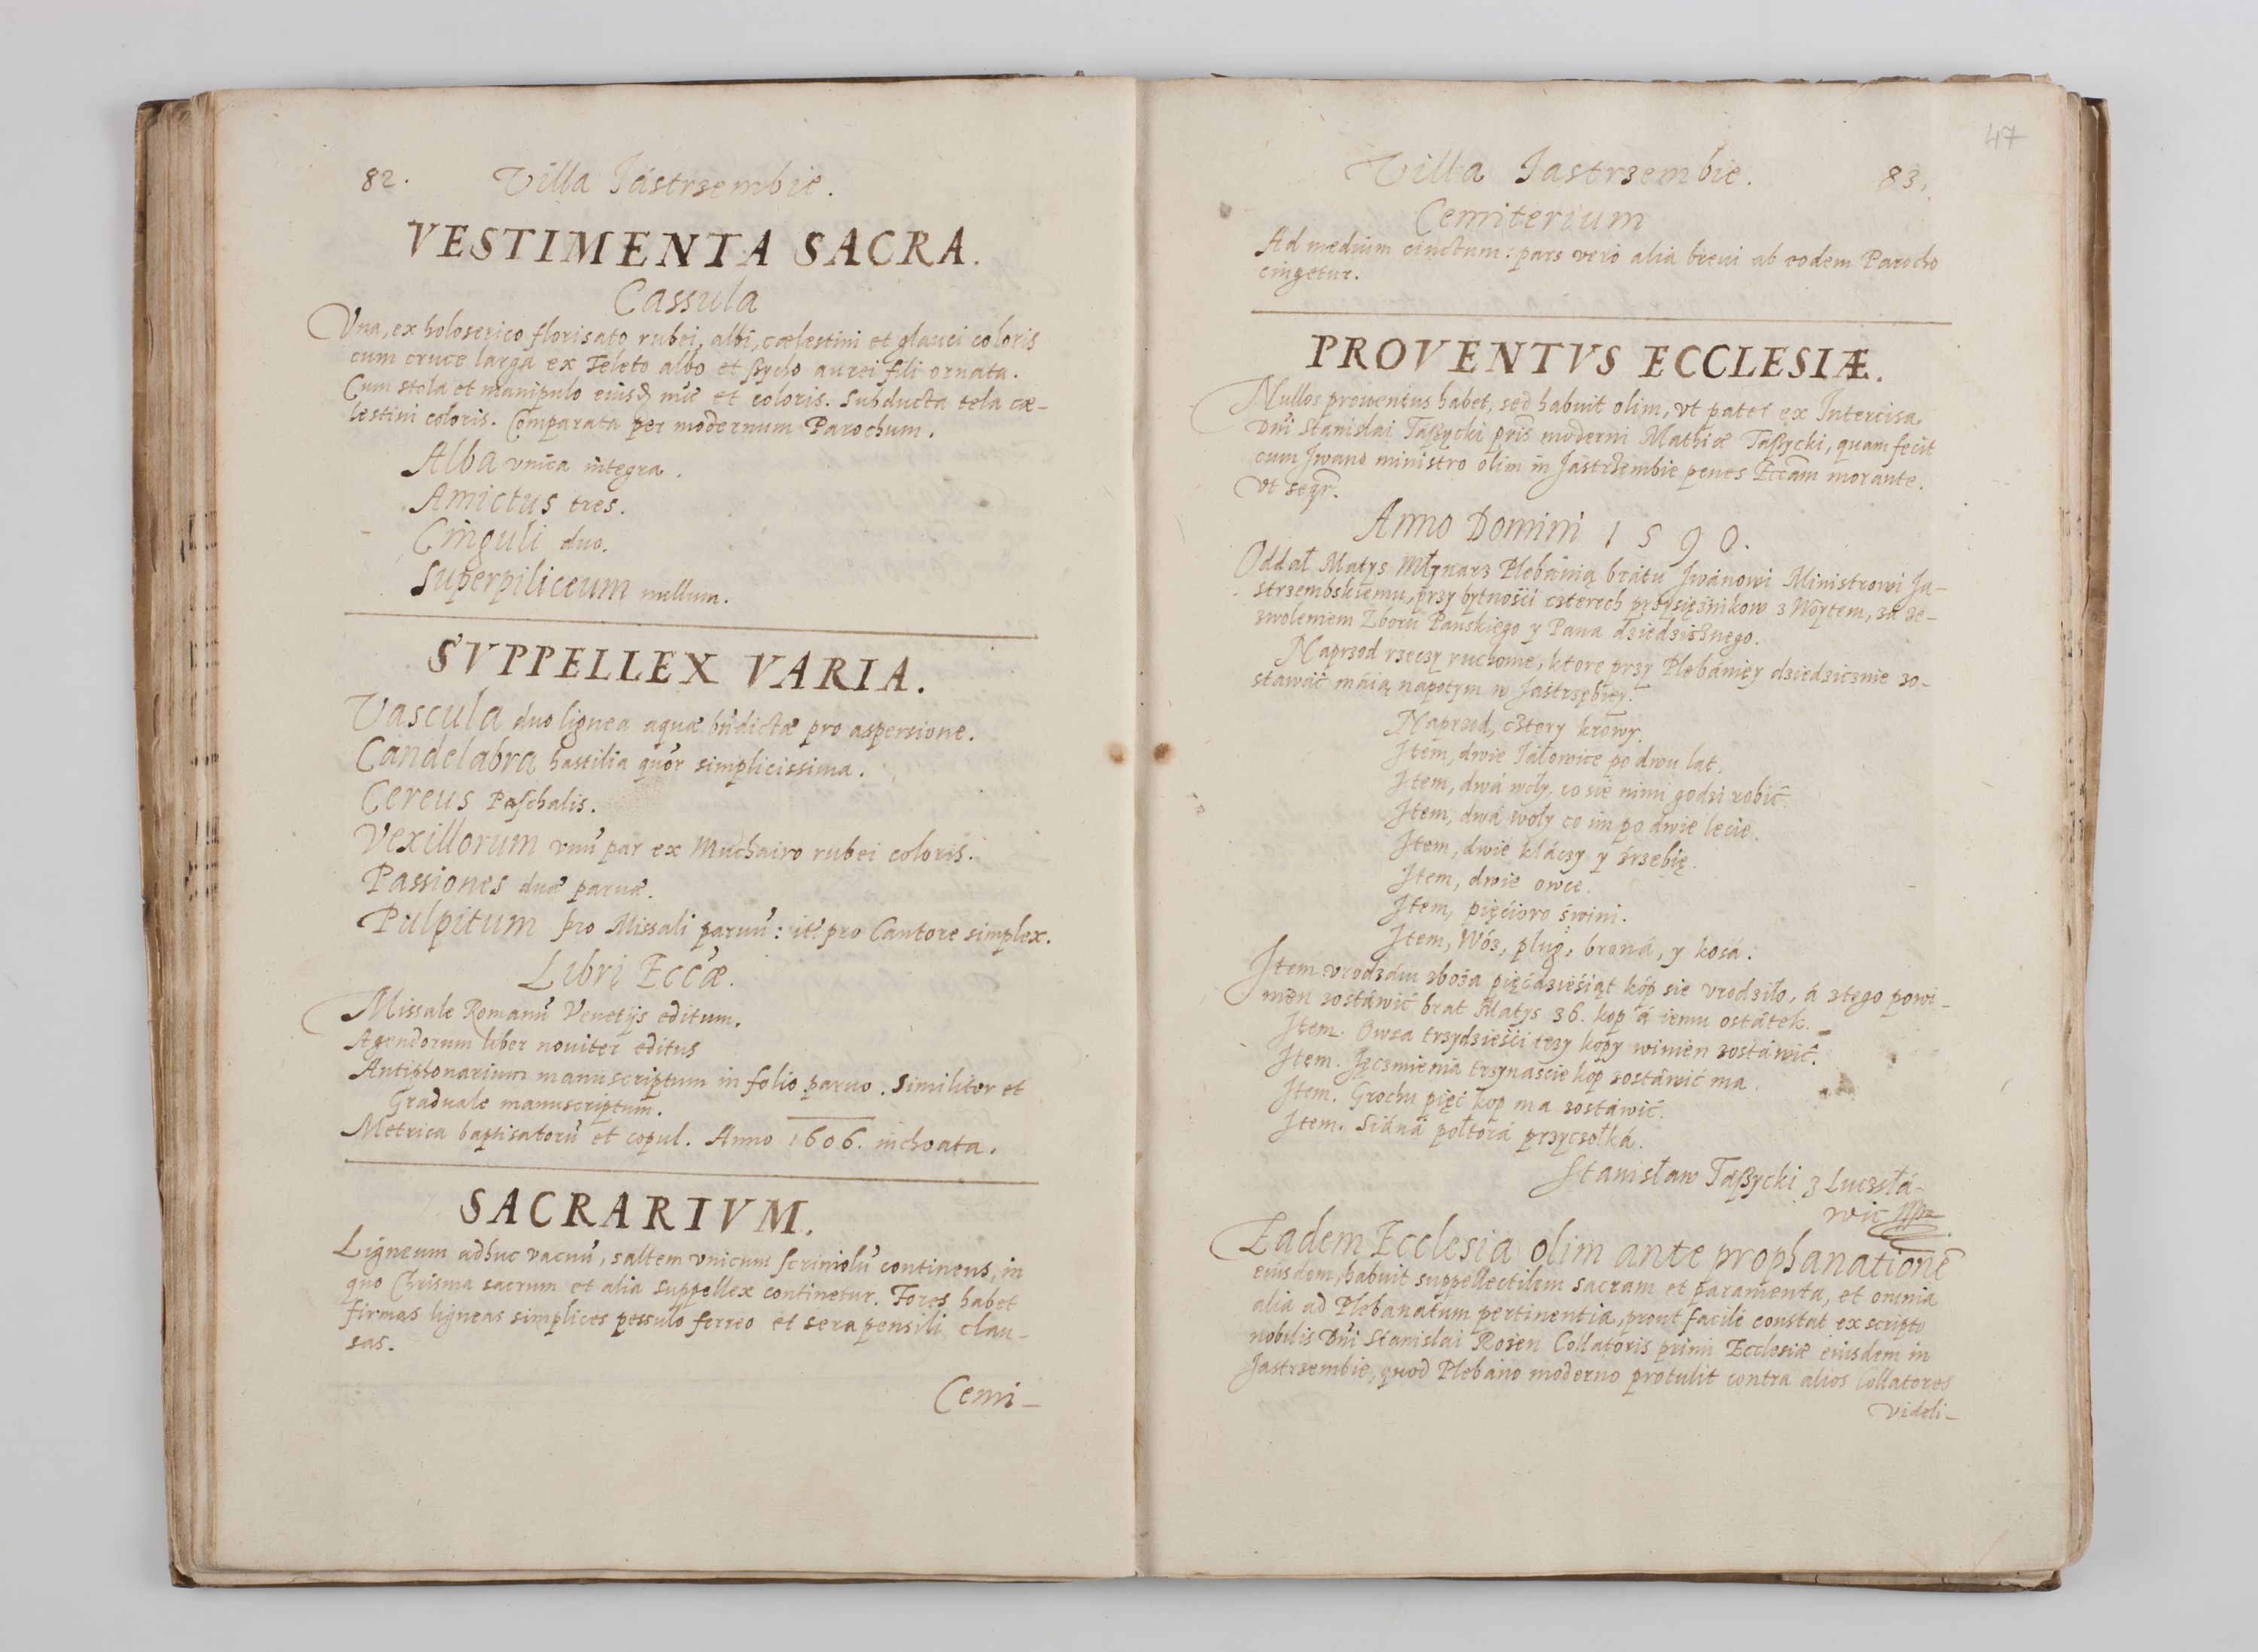 82. Villa Jastrzembie.
VESTIMENTA SACRA.
Cassula
Vna, ex holoserico florisato rubei, albi, cælestini et glauci coloris
cum cruce larga ex Teleto albo et ßycho aurei fili ornata.
Cum stola et manipulo eiusd. mũe et coloris. Subducta tela cæ-
lestini coloris. Comparata per modernum Parochum.
Alba vnica integra.
Amictus tres.
Cinguli duo.
Superpiliceum nullum.
SVPPELLEX VARIA.
Vascula duo lignea aquæ bñdictæ pro aspersione.
Candelabra hastilia quor simplicissima.
Cereus Paschalis.
Vexillorum vnũ par ex Muchairo rubei coloris.
Passiones duæ paruæ.
Pulpitum pro Missali paruũ: it. pro Cantore simplex.
Libri Eccæ.
Missale Romanũ Venetijs editum.
Agendorum liber nouiter editus
Antiphonarium manuscriptum in folio paruo. Similiter et
Graduale manuscriptum.
Metrica baptisatorũ et copul. Anno 1606. inchoata.
SACRARIVM.
Ligneum adhuc vacuũ, saltem vnicum scriniolũ continens, in
quo Chrisma sacrum et alia suppellex continetur. Fores habet
firmas ligneas simplices pessulo ferreo et sera pensili clau-
sas.
Cemi-
47
Villa Jastrzembie. 83.
Cemiterium
Ad medium cinctum: pars verò alia breui ab eodem Parocho
cingetur.
PROVENTVS ECCLESIÆ.
Nullos prouentus habet, sed habuit olim, vt patet ex Intercisa
Dñi Stanislai Taßycki pris moderni Mathiæ Taßycki, quam fecit
cum Jwano ministro olim in Jastrzembie penes Eccam morante.
Vt seqr.
Anno Domini 1590.
Oddał Matys Młynarz Plebánią brátu Jwánowi Ministrowi Ja-
strzembskiemu, przy bytności czterech przysiężnikow z Woytem, za ze-
zwoleniem Zboru Pańskiego y Pana dziedzicznego.
Naprzod rzeczy ruchome, ktore przy Plebániey dziedzicznie zo-
stawáć máią napotym w Jastrzębiey.
Naprzod, cztery krowy.
Jtem, dwie Jałowice po dwu lat.
Jtem, dwá woły, co sie nimi godzi robić.
Jtem, dwá woły co im po dwie lecie.
Jtem, dwie kláczy y źrzebię.
Jtem, dwie owce.
Jtem, pięcioro świni.
Jtem, Wóz, pług, broná, y kosá:
Jtem vrodzáiu zboża pięćdzieśiąt kóp sie vrodziło, á z tego powi-
nien zostáwić brat Matys 36. kop á iemu ostátek.
Jtem. Owsa trzydzieści trzy kopy winien zostáwić.
Jtem. Jęczmienia trzynascie kop zostáwić ma.
Jtem. Grochu pięć kop ma zostáwić.
Jtem. Siáná połtorá przyczołká.
Stanisław Taßycki z Luczsłá-
wic mpr
Eadem Ecclesia olim ante prophanationẽ
eiusdem, habuit suppellectilem sacram et paramenta, et omnia
alia ad Plebanatum pertinentia, prout facile constat ex scripto
nobilis Dñi Stanislai Rozen Collatoris primi Ecclesiæ eiusdem in
Jastrzembie, quod Plebano moderno protulit contra alios Collatores
videli-